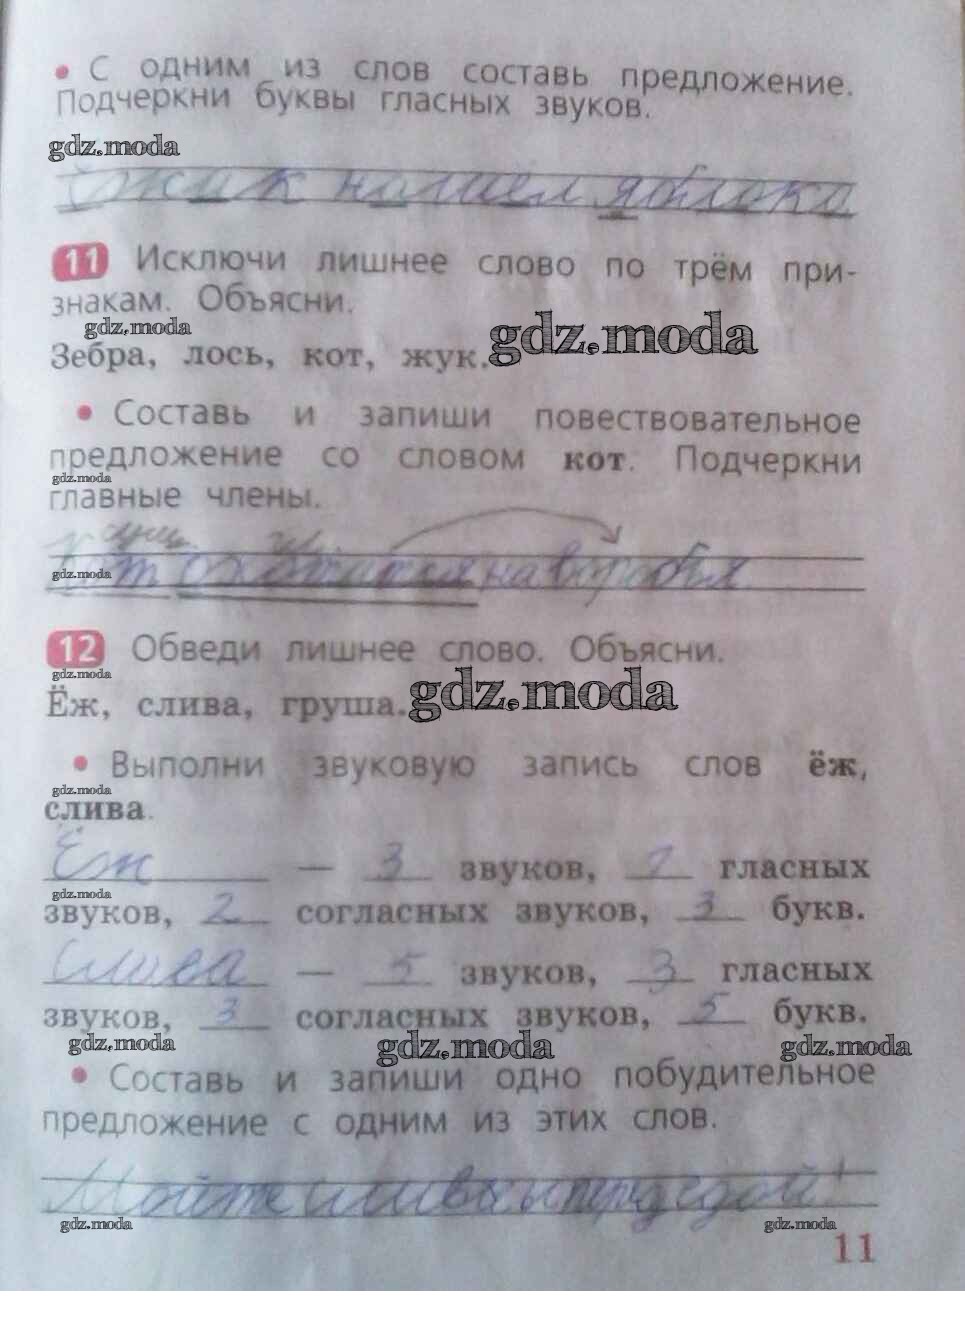 • С одним из слов составь предложение.
Подчеркни буквы гласных звуков.
gdz.moda
Ёжик нашёл яблоко
11 Исключи лишнее слово по трём при-
знакам. Объясни.
gdz.moda
Зебра, лось, кот, жук.
gdz.moda
• Составь и запиши повествовательное
предложение со словом кот. Подчеркни
gdz.moda
главные члены.
сущ.
gdz.moda
охотится на воробья
12 Обведи лишнее слово. Объясни.
gdz.moda
Ёж, слива, груша.
gdz.moda
• Выполни звуковую запись слов ёж,
gdz.moda
слива.
Ёж — 3 звуков, 1 гласных
gdz.moda
звуков, 2 согласных звуков, 3 букв.
Слива — 5 звуков, 3 гласных
звуков, 3 согласных звуков, 5 букв.
gdz.moda gdz.moda gdz.moda
• Составь и запиши одно побудительное
предложение с одним из этих слов.
Мойте сливы перед едой!
gdz.moda gdz.moda
11